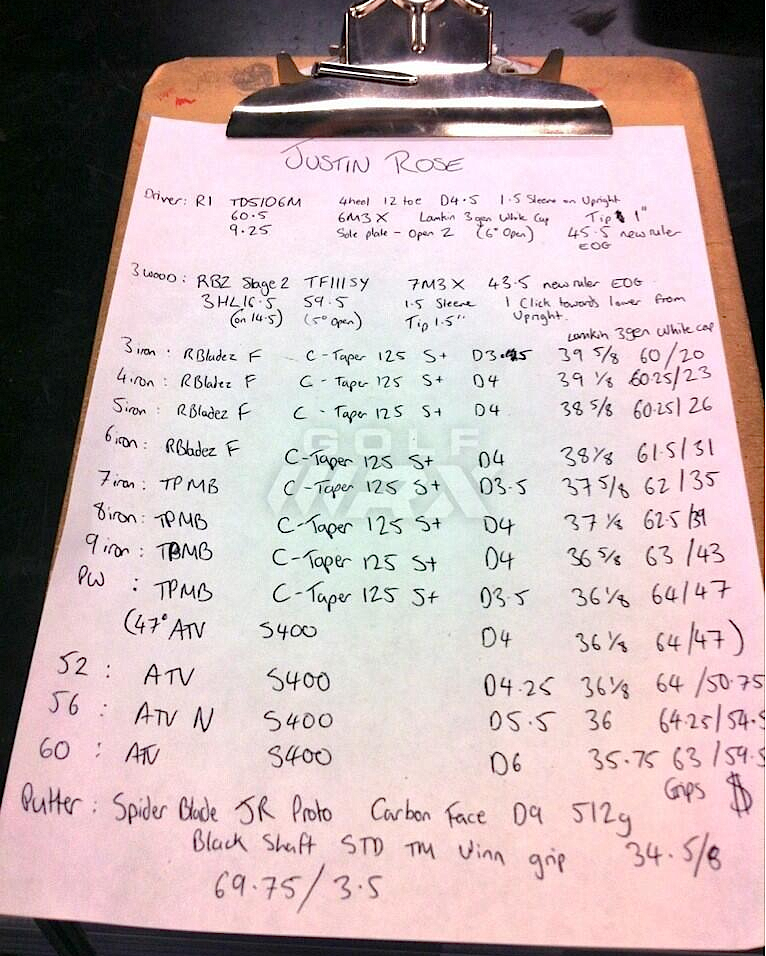 JUSTIN ROSE
Driver: R1 TDS106M 4heel 12 toe D4.5 1.5 Sleeve on Upright
60.5 6M3 X Lamkin 3gen White Cap Tip 1"
9.25 Sole plate - Open 2 (6° Open) 45.5 new ruler
EOG
3 wood: RBZ Stage 2 TF111SY 7M3 X 43.5 new ruler EOG
3HL16.5 59.5 1.5 Sleeve 1 Click towards lower from
(on 14.5) (5° Open) Tip 1.5" Upright.
Lamkin 3gen White cap
3 iron: RBladez F C-Taper 125 S+ D3.5 39 5/8 60/20
4 iron: RBladez F C-Taper 125 S+ D4 39 1/8 60.25/23
5 iron: RBladez F C-Taper 125 S+ D4 38 5/8 60.25/26
6 iron: RBladez F C-Taper 125 S+ D4 38 1/8 61.5/31
7 iron: TPMB C-Taper 125 S+ D3.5 37 5/8 62/35
8 iron: TPMB C-Taper 125 S+ D4 37 1/8 62.5/39
9 iron: TPMB C-Taper 125 S+ D4 36 5/8 63/43
PW : TPMB C-Taper 125 S+ D3.5 36 1/8 64/47
(47° ATV S400 D4 36 1/8 64/47)
52 : ATV S400 D4.25 36 1/8 64/50.75
56 : ATV N S400 D5.5 36 64.25/54.5
60 : ATV S400 D6 35.75 63/59.5
Grips $
Putter: Spider Blade JR Proto Carbon Face D9 512g
Black Shaft STD TM Winn grip 34.5/8
69.75/3.5
GOLF
WRX